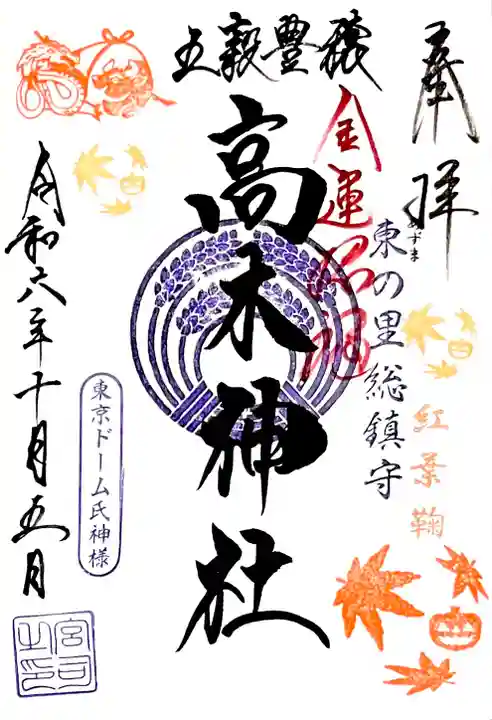 奉拝
東の里総鎮守
あずま
紅葉鞠
五穀豊穣
金運招福
高木神社
東京ドーム氏神様
令和六年十月五日
宮司之印